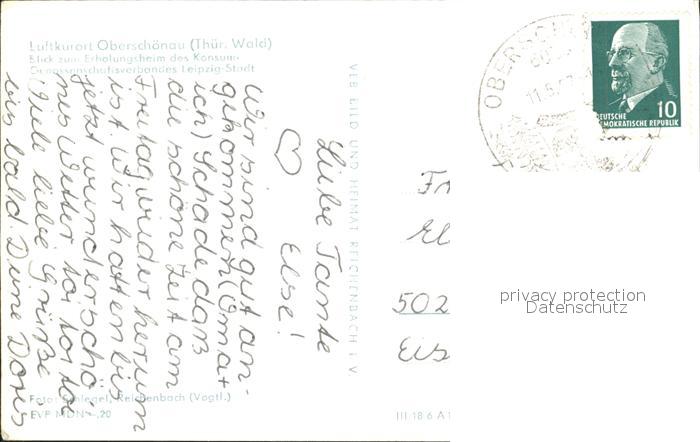 Luftkurort Oberschönau (Thür. Wald)
Blick zum Erholungsheim des Konsum-
Genossenschaftsverbandes Leipzig-Stadt
Liebe Tante
Else!
Wir sind gut an-
gekommen (Oma +
ich) Schade daß
die schöne Zeit am
Freitag wieder herum
ist. Wir hatten bis
jetzt wunderschö-
nes Wetter
Viele liebe Grüße
bis bald Deine Doris
VEB BILD UND HEIMAT REICHENBACH I. V.
Foto: Schlegel, Reichenbach (Vogtl.)
EVP MDN -,20
III/18/6 A1
OBERSCH
11.5.
10
DEUTSCHE
DEMOKRATISCHE REPUBLIK
Fr
El
502
Eis
privacy protection
Datenschutz